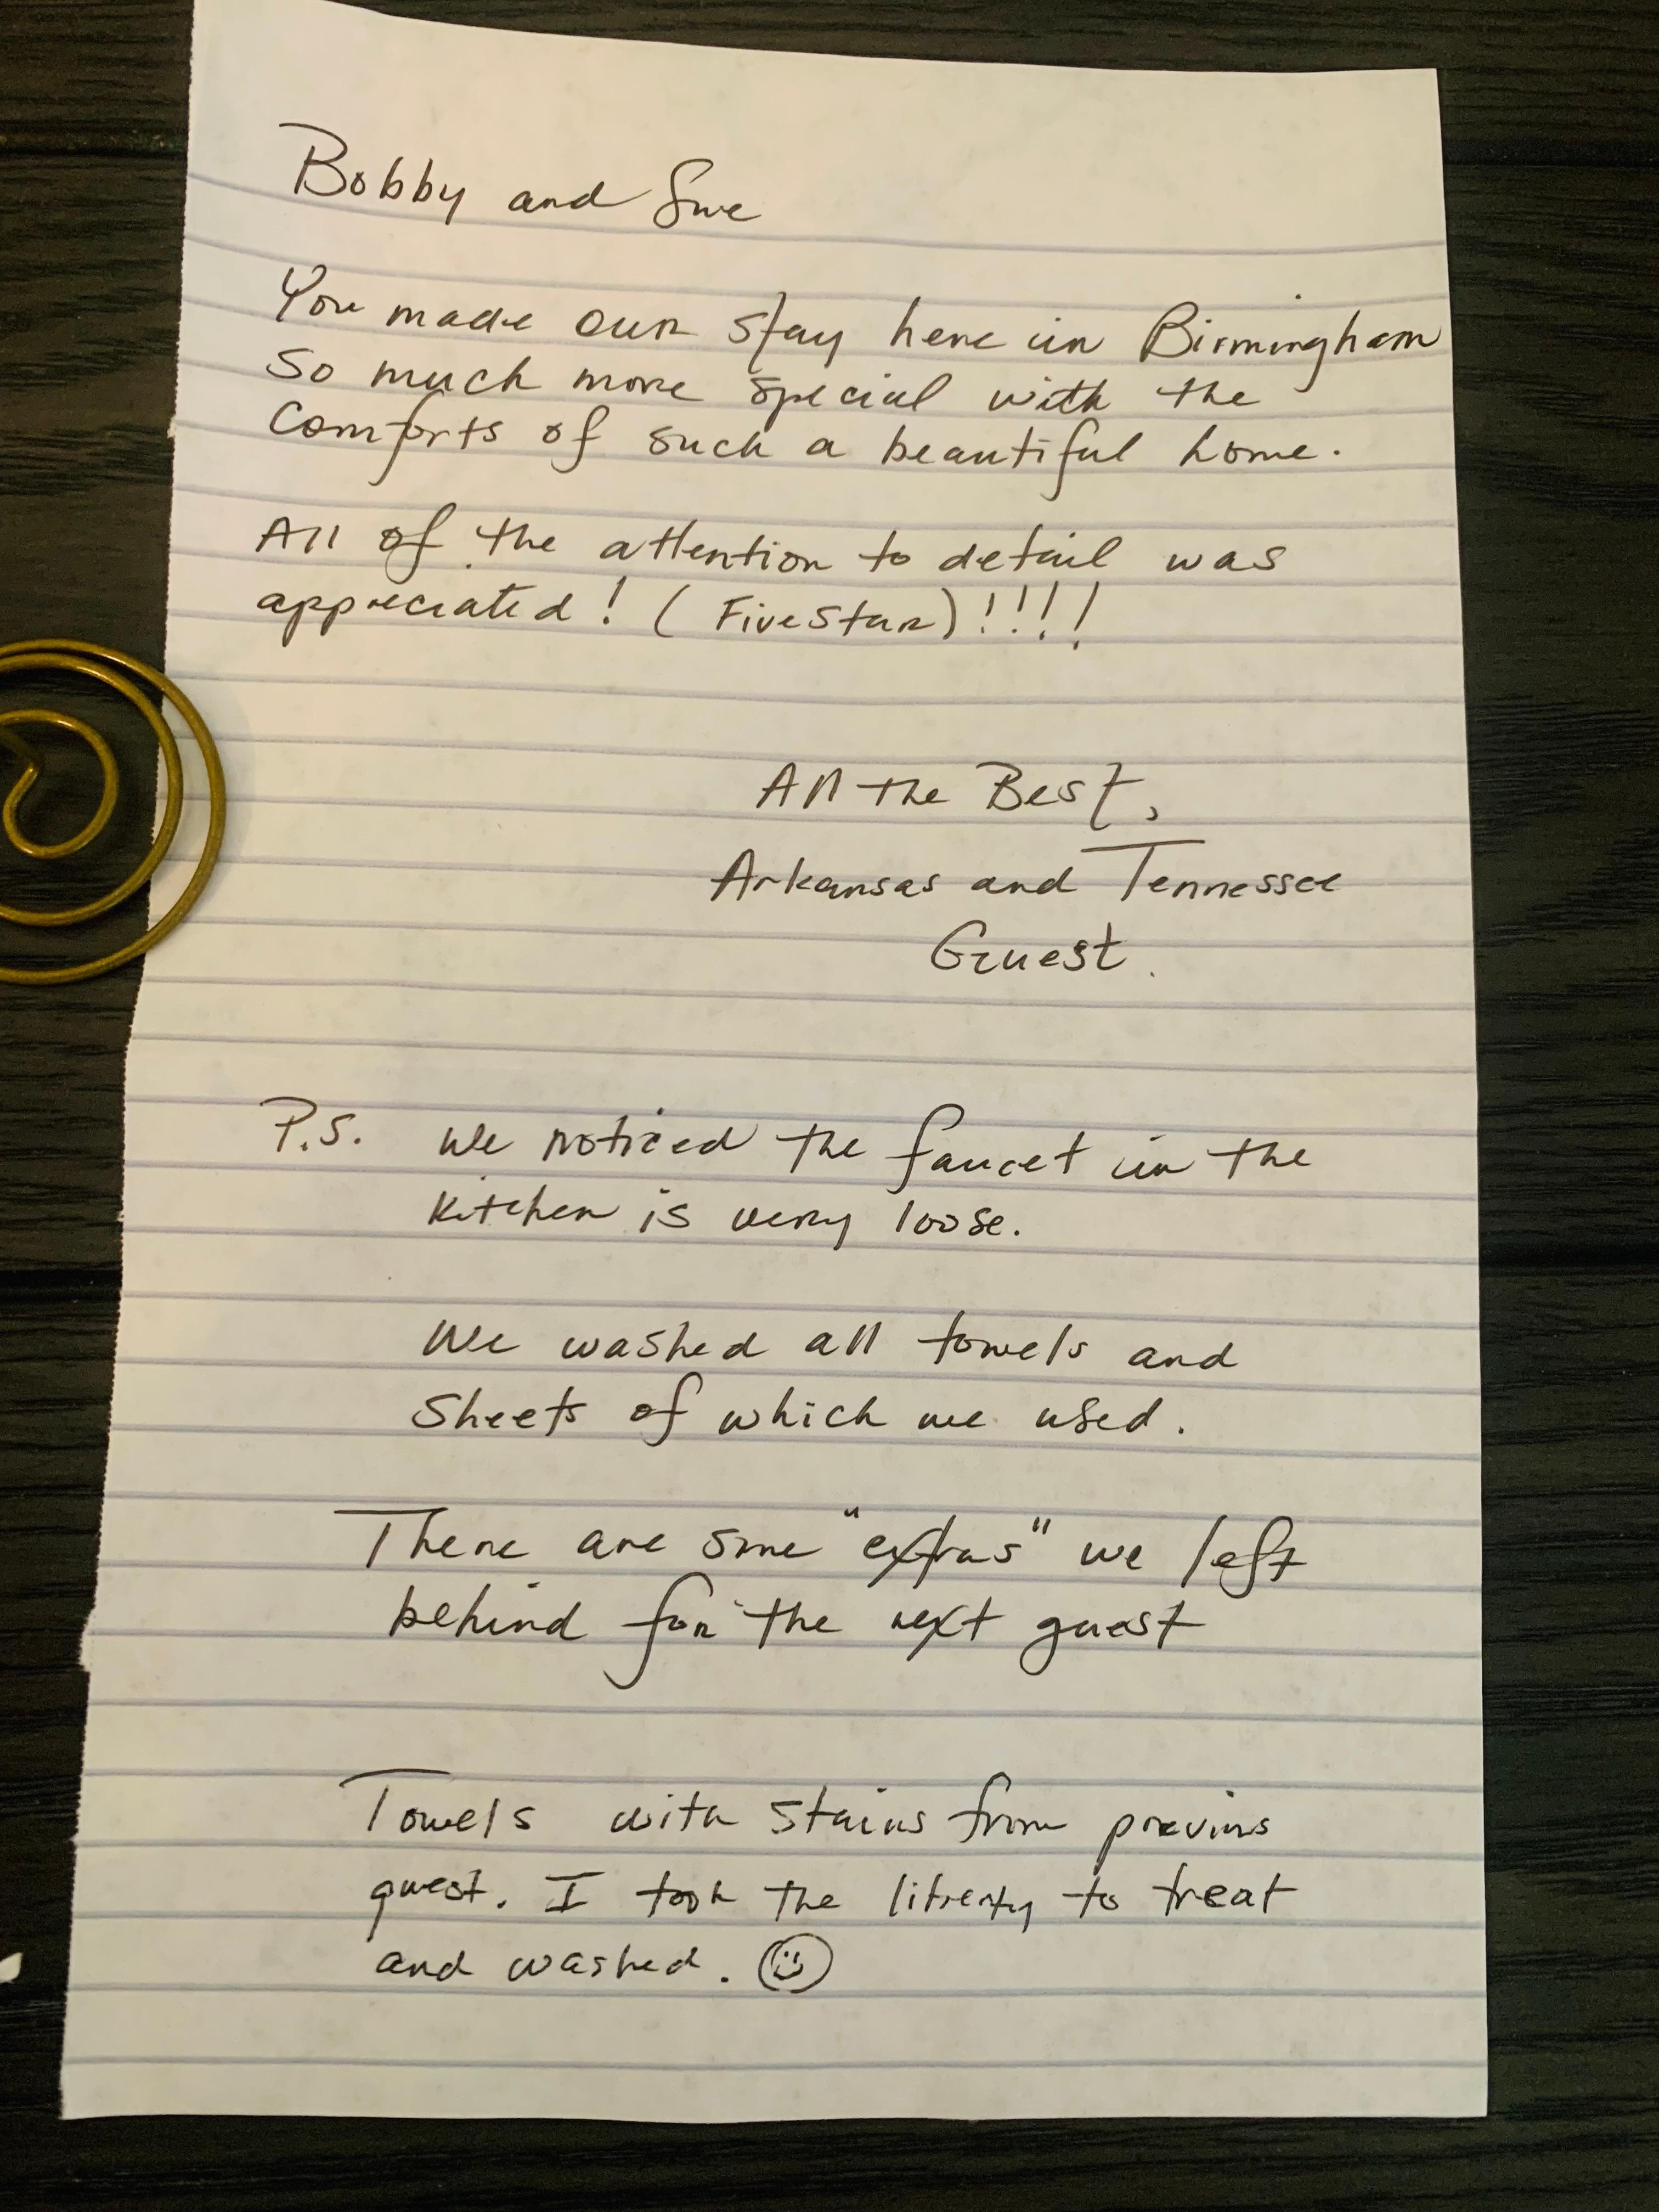 Bobby and Sue
You made our stay here in Birmingham
so much more special with the
comforts of such a beautiful home.
All of the attention to detail was
appreciated! (Five Star)!!!!
All the Best,
Arkansas and Tennessee
Guest.
P.S. We noticed the faucet in the
kitchen is very loose.
We washed all towels and
sheets of which we used.
There are some "extras" we left
behind for the next guest
Towels with stains from previous
guest. I took the liberty to treat
and washed. ☺